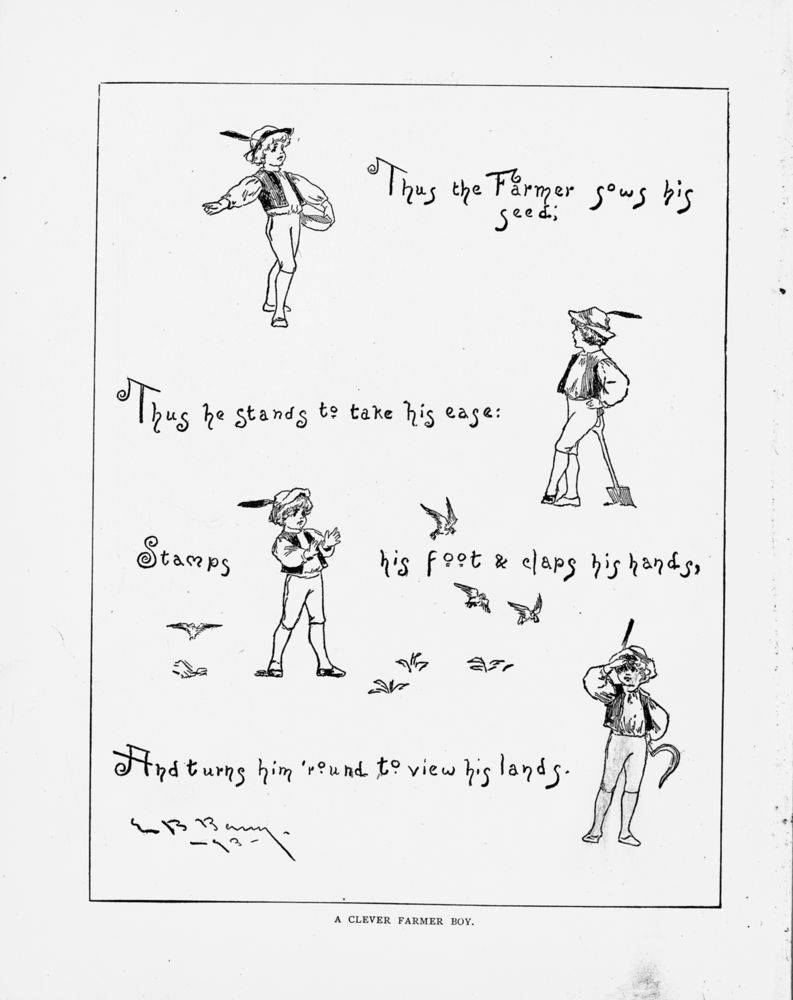 Thus the Farmer sows his
seed;
Thus he stands to take his ease:
Stamps his foot & claps his hands,
And turns him 'round to view his lands.
E B Barry.
-93-
A CLEVER FARMER BOY.